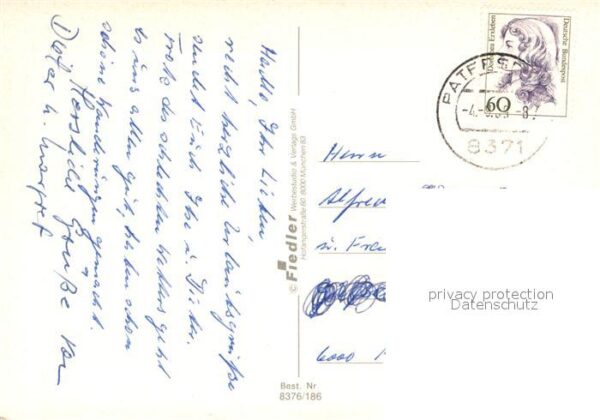 Hallo, Ihr Lieben,
recht herzliche Urlaubsgrüße
sendet Euch Ihr u. Dieter.
Trotz des schlechten Wetters geht
es uns allen gut, haben schon
schöne Wanderungen gemacht.
Herzliche Grüße von
Dieter u. Margret
© Fiedler Werbestudio & Verlags GmbH
Hofangerstraße 60 8000 München 83
Dorothea Erxleben
Deutsche Bundespost
60
PATERSD
8371
Herrn
Alfred
u. Frau
6000
privacy protection
Datenschutz
Best. Nr
8376/186